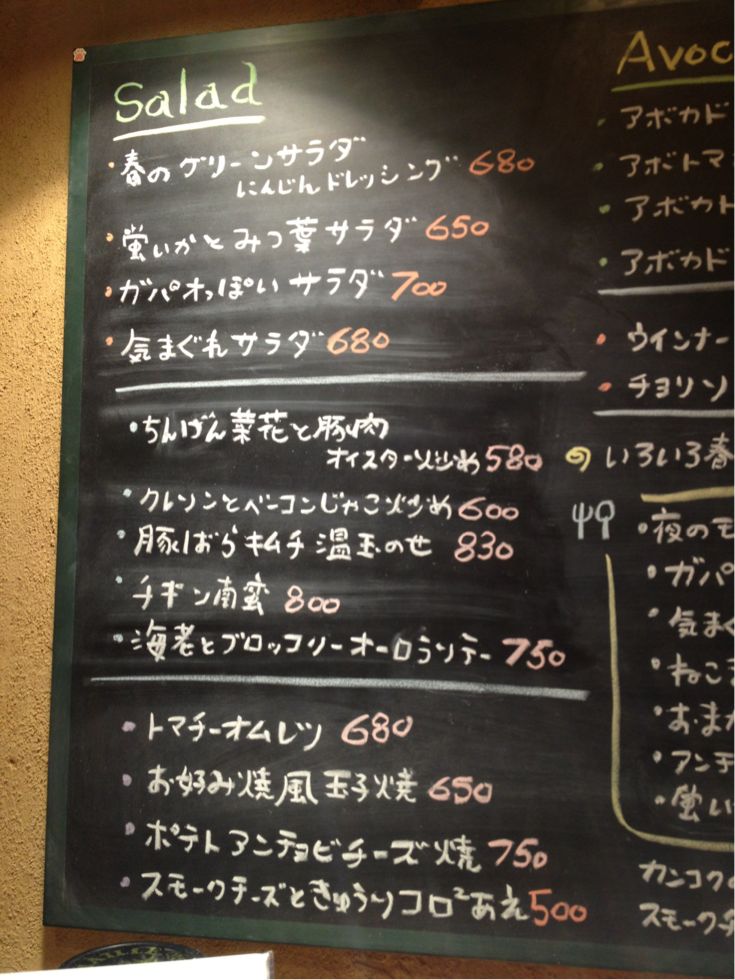 Salad
・春のグリーンサラダ
にんじんドレッシング 680
・蛍いかとみつ葉サラダ 650
・ガパオっぽいサラダ 700
・気まぐれサラダ 680
・ちんげん菜花と豚肉
オイスターソース炒め 580
・クレソンとベーコンじゃこ炒め 600
・豚ばらキムチ温玉のせ 830
・チキン南蛮 800
・海老とブロッコリーオーロラソテー 750
・トマチーオムレツ 680
・お好み焼風玉子焼 650
・ポテトアンチョビチーズ焼 750
・スモークチーズときゅうりコロ²あえ 500
Avoc
・アボカド
・アボトマ
・アボカド
・アボカド
・ウインナー
・チョリソ
いろいろ春
・夜のモ
・ガパ
・気まぐ
・ねこ
・おまか
・アンチ
カンコクの
スモークチ